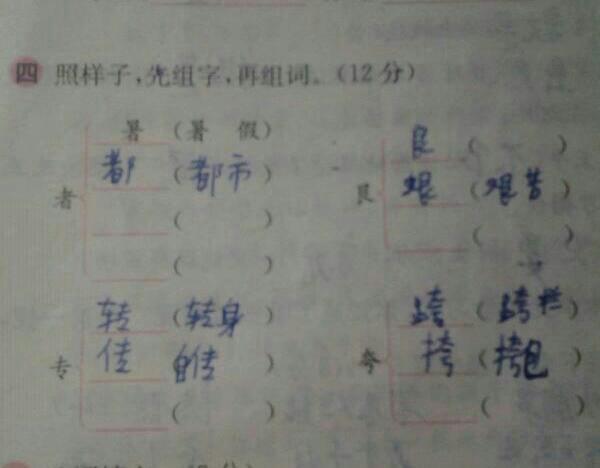 四 照样子,先组字,再组词。(12分)
者
暑 (暑 假)
都 (都市)
( )
( )
艮
良 ( )
艰 (艰苦)
( )
专
转 (转身)
传 自传 )
( )
夸
跨 (跨栏)
挎 (挎包)
( )